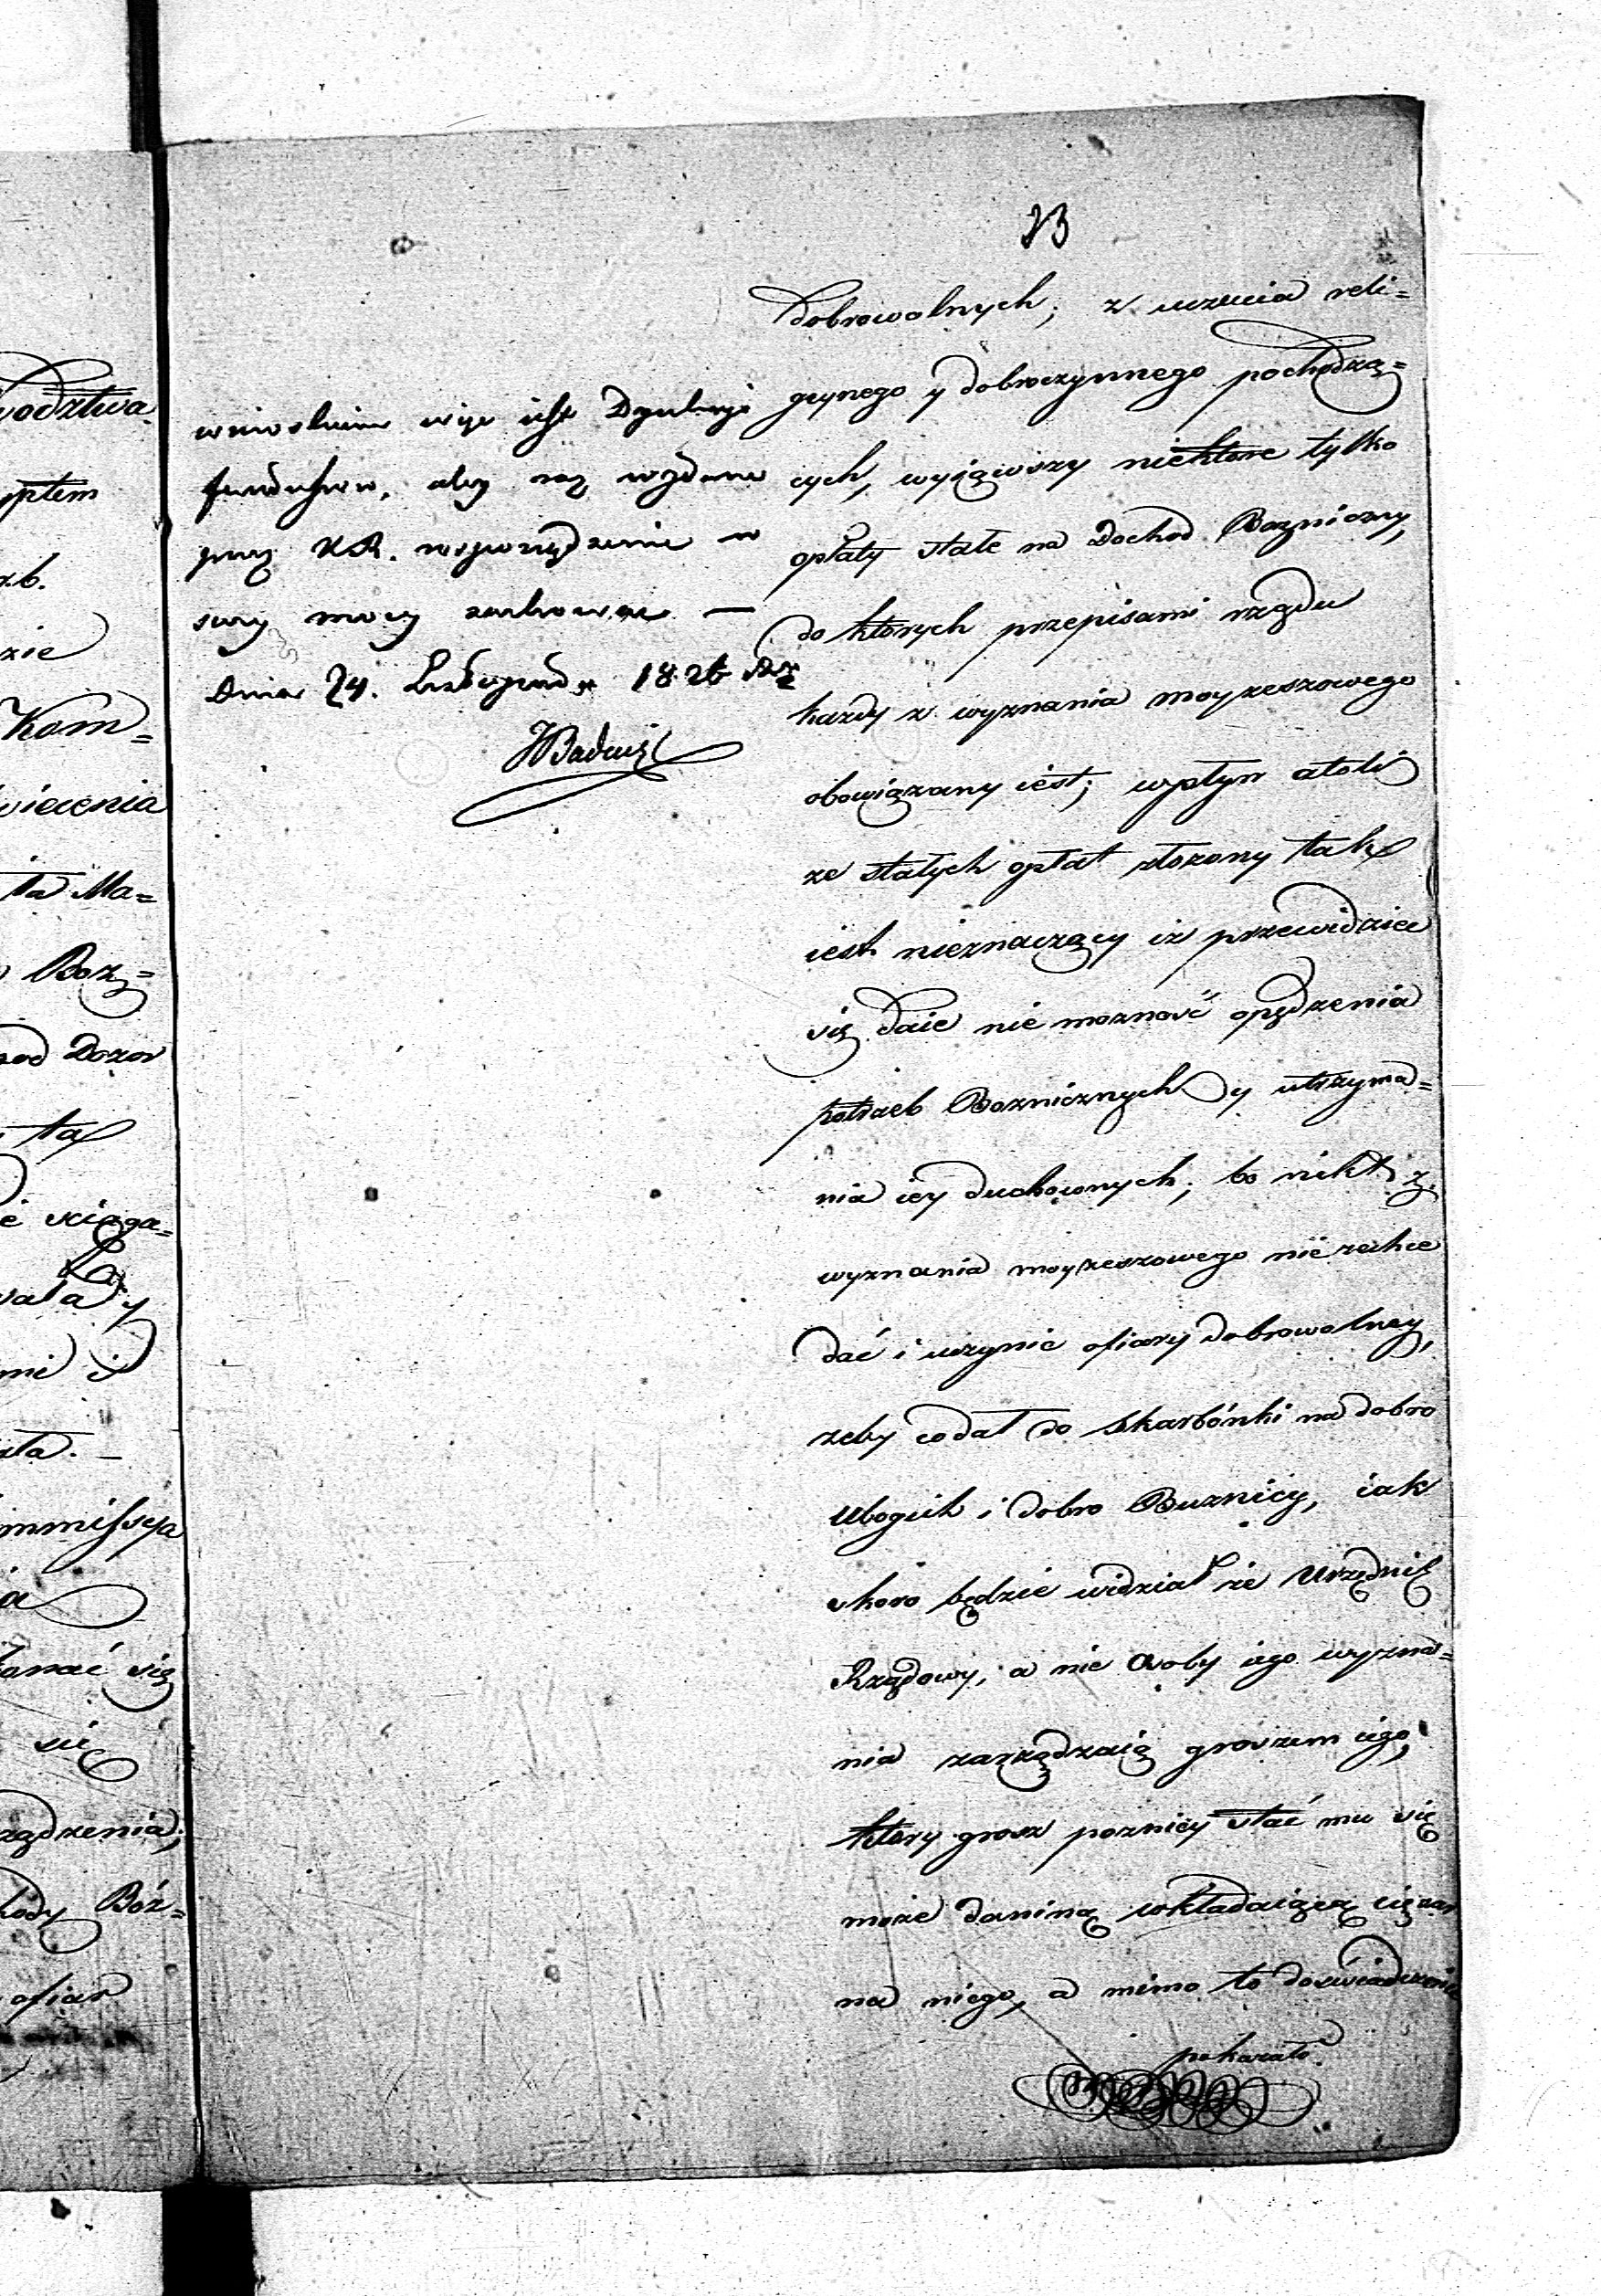 23
dobrowolnych, z uczucia reli=
gÿnego y dobroczynnego pochodzą=
cych, wyiąwszy niektore tylko
opłaty stałe na Dochod Bozniczny,
do ktorych przepisami rządu
kazdy z wyznania moyzeszowego
obowiązany iest; wpływ atoli
ze stałych opłat złozony tak
iest nieznaczący iz przewidziec
się daie nie moznosć opędzenia
potrzeb Boznicznych y utrzyma=
nia iey duchownych; bo nikt z
wyznania moyzeszowego nie zechce
dać i uczynic ofiary dobrowolney,
zeby co dał do Skarbónki na dobro
Ubogich i dobro Buznicy, iak
skoro będzie widział ze Urzędnik
Rządowy, a nie Osoby iego wyzna=
nia zarządzaią groszem iego,
ktory grosz pozniey stać mu się
może daniną wkładaiącą cięzar
na niego, a mimo to doswiadczenie
pokazało
wnioskiem więc iest Dyrekcyi
funduszow, aby raz wydane
przez KR. rozporządzenie w
swey mocy zachować —
Dnia 24. Listopada 1826 Rz
HBadeni
wodztwa
ptem
zb.
zie
Kom=
wiecenia
ta Ma=
Boz=
od Dozor
ta
e sciąga=
wała y
mi i
zta. —
ommissya
a
ować się
się
ządzenia,
hody Bóz=
ofiar